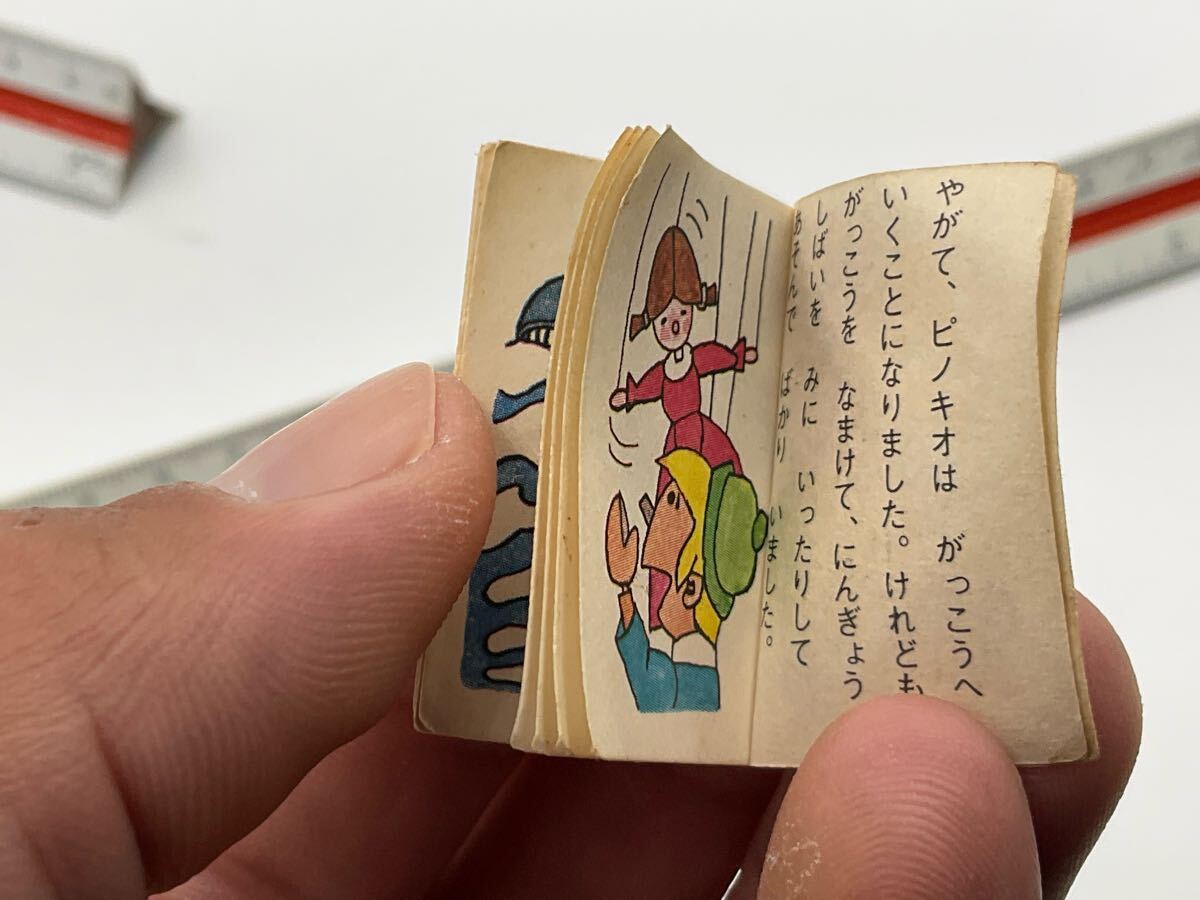 やがて、ピノキオは がっこうへ
いくことになりました。けれども
がっこうを なまけて、にんぎょう
しばいを みに いったりして
あそんで ばかり いました。